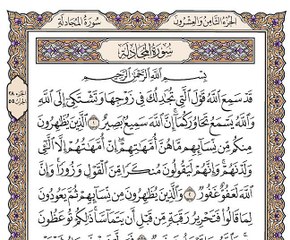 الجزء الثامن والعشرون
سورة المجادلة
سورة المجادلة
بِسْمِ اللَّهِ الرَّحْمَٰنِ الرَّحِيمِ
قَدْ سَمِعَ اللَّهُ قَوْلَ الَّتِي تُجَادِلُكَ فِي زَوْجِهَا وَتَشْتَكِي إِلَى اللَّهِ
وَاللَّهُ يَسْمَعُ تَحَاوُرَكُمَا إِنَّ اللَّهَ سَمِيعٌ بَصِيرٌ ١ الَّذِينَ يُظَاهِرُونَ
مِنكُم مِّن نِّسَائِهِم مَّا هُنَّ أُمَّهَاتِهِمْ إِنْ أُمَّهَاتُهُمْ إِلَّا اللَّائِي
وَلَدْنَهُمْ وَإِنَّهُمْ لَيَقُولُونَ مُنكَرًا مِّنَ الْقَوْلِ وَزُورًا وَإِنَّ
اللَّهَ لَعَفُوٌّ غَفُورٌ ٢ وَالَّذِينَ يُظَاهِرُونَ مِن نِّسَائِهِمْ ثُمَّ يَعُودُونَ
لِمَا قَالُوا فَتَحْرِيرُ رَقَبَةٍ مِّن قَبْلِ أَن يَتَمَاسَّا ذَٰلِكُمْ تُوعَظُونَ